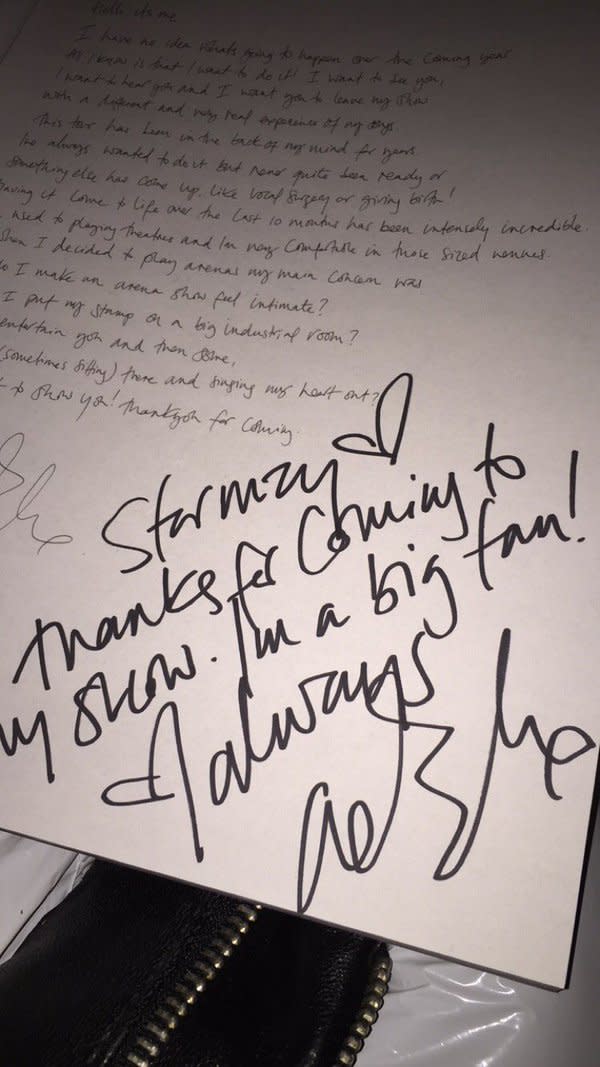 Hello its me
I have no idea whats going to happen over the coming year
All I know is that I want to do it! I want to see you,
I want to hear you and I want you to leave my show
with a different and very real experience of my songs
This tour has been in the back of my mind for years
Ive always wanted to do it but never quite been ready or
something else has come up. Like vocal surgery or giving birth!
Having it come to life over the last 10 months has been intensely incredible.
used to playing theatres and Im very comfortable in those sized venues.
When I decided to play arenas my main concern was
do I make an arena show feel intimate?
I put my stamp on a big industrial room?
entertain you and then some,
(sometimes sitting) there and singing my heart out?
to show you! thankyou for coming
Stormzy
thanks for coming to
my show. I'm a big fan!
always